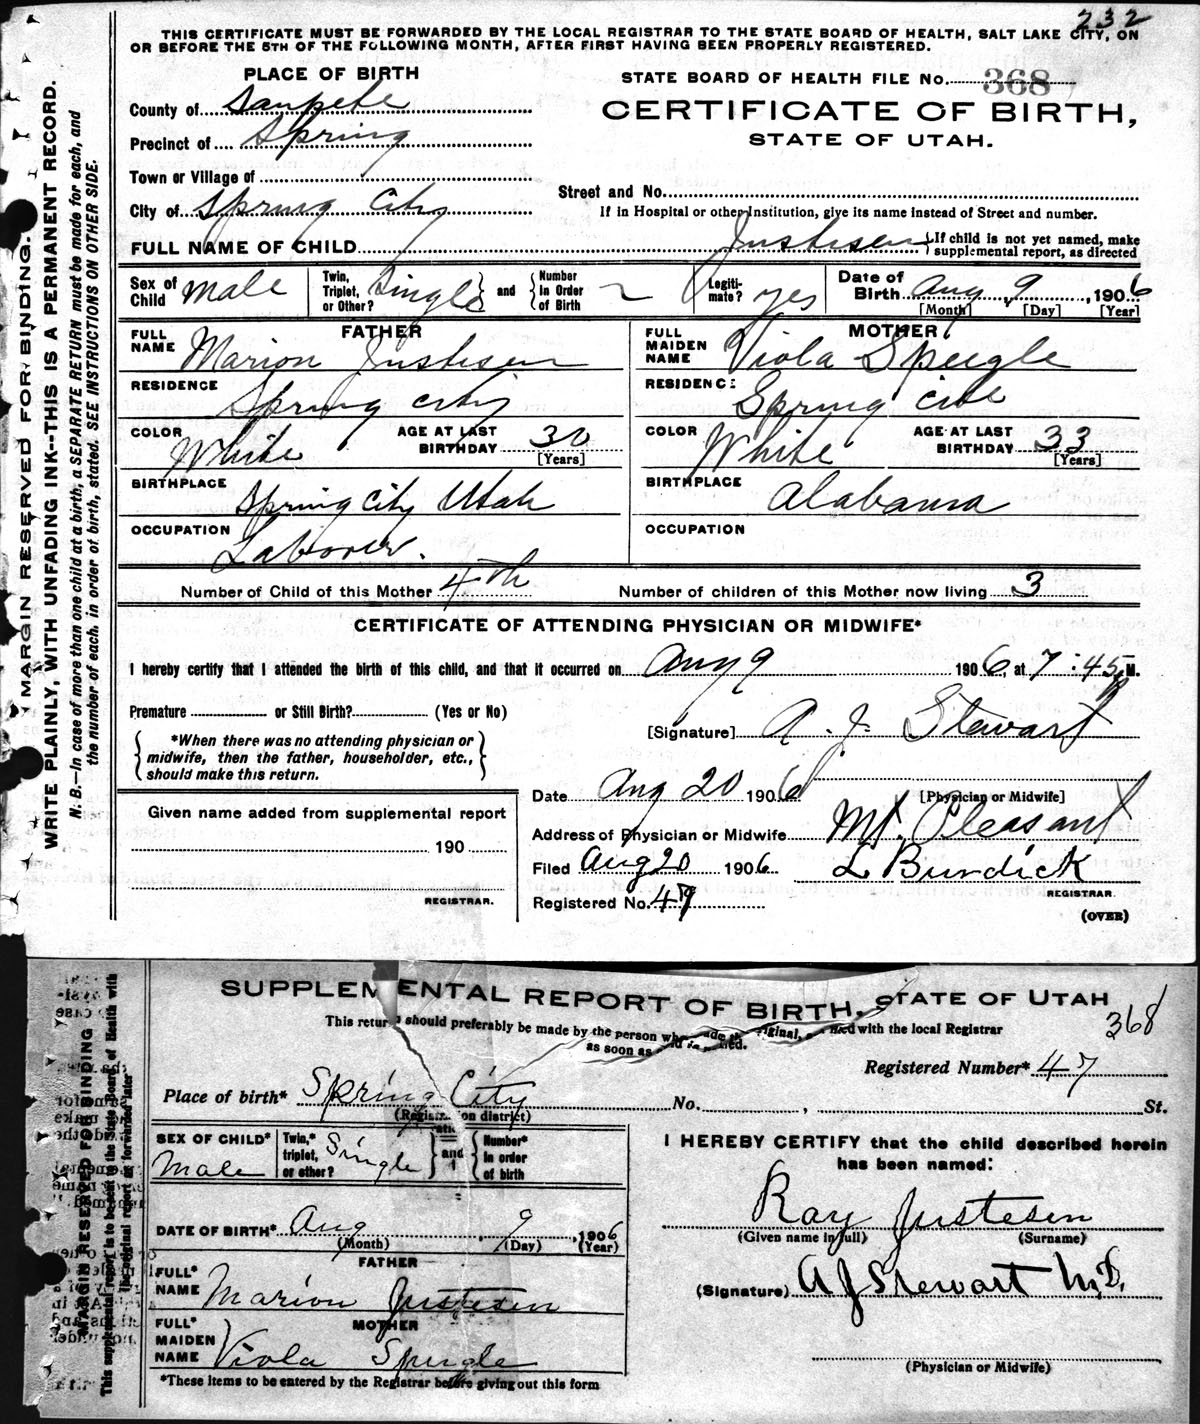 232
THIS CERTIFICATE MUST BE FORWARDED BY THE LOCAL REGISTRAR TO THE STATE BOARD OF HEALTH, SALT LAKE CITY, ON
OR BEFORE THE 5TH OF THE FOLLOWING MONTH, AFTER FIRST HAVING BEEN PROPERLY REGISTERED.
PLACE OF BIRTH
STATE BOARD OF HEALTH FILE No. 368
County of Sanpete
CERTIFICATE OF BIRTH,
Precinct of Spring
STATE OF UTAH.
Town or Village of
Street and No.
City of Spring City
If in Hospital or other Institution, give its name instead of Street and number.
FULL NAME OF CHILD Justesen {If child is not yet named, make supplemental report, as directed
Sex of Child Male
Twin, Triplet, or Other? Single
and {Number in Order of Birth
Legitimate? yes
Date of Birth Aug 9, 1906
[Month] [Day] [Year]
FATHER
FULL NAME Marion Justesen
RESIDENCE Spring City
COLOR White AGE AT LAST BIRTHDAY 30 [Years]
BIRTHPLACE Spring City Utah
OCCUPATION Laborer.
MOTHER
FULL MAIDEN NAME Viola Speigle
RESIDENCE Spring Cite
COLOR White AGE AT LAST BIRTHDAY 33 [Years]
BIRTHPLACE Alabama
OCCUPATION
Number of Child of this Mother 4th Number of children of this Mother now living 3
CERTIFICATE OF ATTENDING PHYSICIAN OR MIDWIFE*
I hereby certify that I attended the birth of this child, and that it occurred on Aug 9 1906, at 7:45 P M.
Premature or Still Birth? (Yes or No)
[Signature] A. J. Stewart
*When there was no attending physician or
midwife, then the father, householder, etc.,
should make this return.
Date Aug 20 1906 [Physician or Midwife]
Given name added from supplemental report
Address of Physician or Midwife Mt. Pleasant
190
Filed Aug 20 1906 L Burdick
REGISTRAR.
REGISTRAR.
Registered No. 47
(OVER)
MARGIN RESERVED FOR BINDING.
WRITE PLAINLY, WITH UNFADING INK--THIS IS A PERMANENT RECORD.
N. B.—In case of more than one child at a birth, a SEPARATE RETURN must be made for each, and
the number of each, in order of birth, stated. SEE INSTRUCTIONS ON OTHER SIDE.
SUPPLEMENTAL REPORT OF BIRTH. STATE OF UTAH
368
This return should preferably be made by the person who made the original, and filed with the local Registrar
as soon as child is named.
Registered Number* 47
Place of birth* Spring City No. , St.
(Registration district)
SEX OF CHILD* Male
Twin,* triplet, or other? Single
and
Number* in order of birth
I HEREBY CERTIFY that the child described herein
has been named:
Ray Justesen
(Given name in full) (Surname)
DATE OF BIRTH* Aug 9, 1906
(Month) (Day) (Year)
FATHER
FULL* NAME Marion Justesen
(Signature) A J Stewart M.D.
MOTHER
FULL* MAIDEN NAME Viola Speigle
(Physician or Midwife)
*These items to be entered by the Registrar before giving out this form
MARGIN RESERVED FOR BINDING
This supplemental report is to be sent to the State Board of Health with
the original report if forwarded later